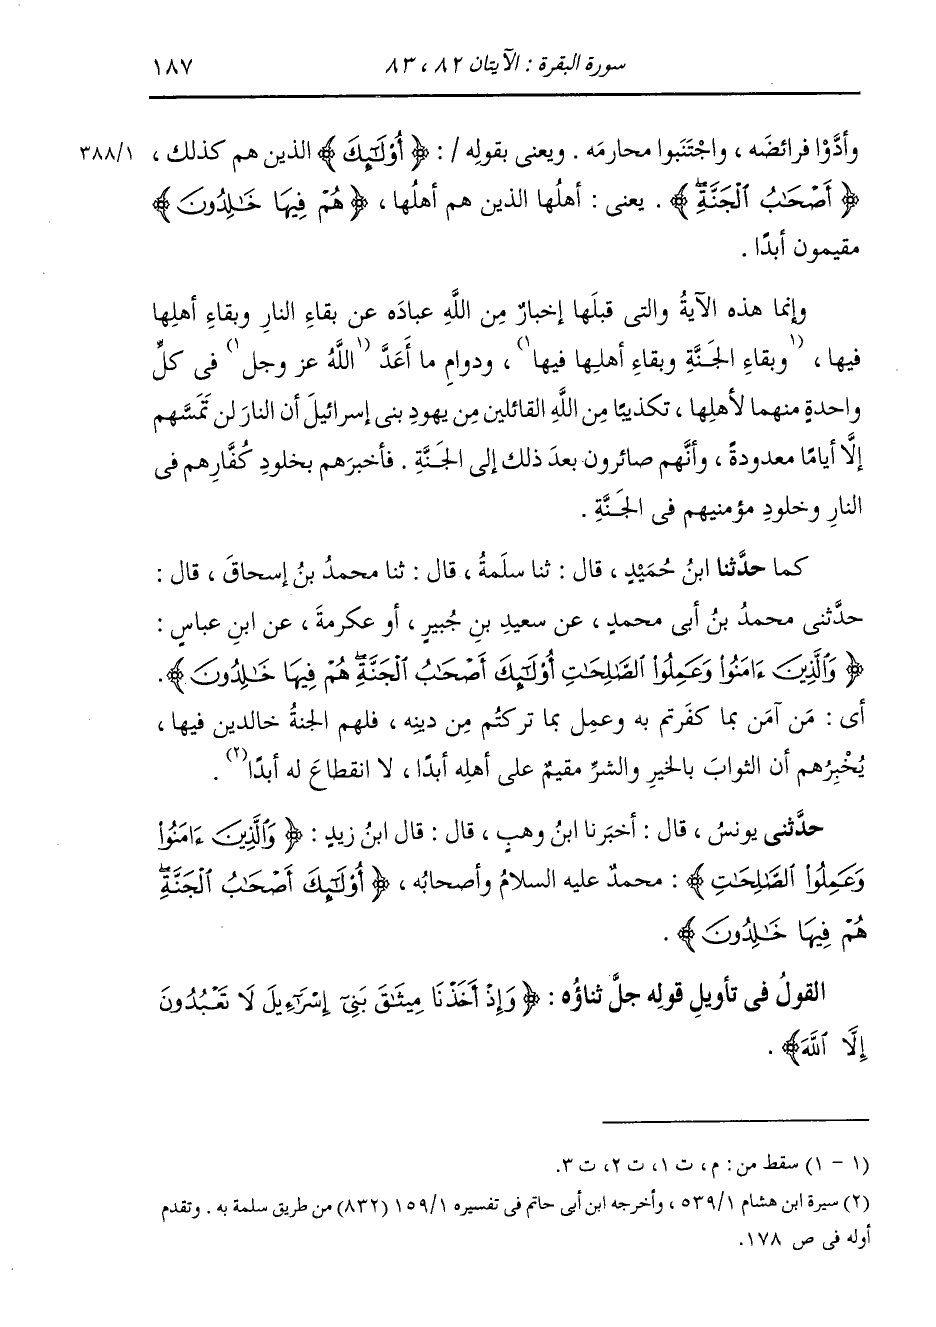 سورة البقرة : الآيتان ٨٢ ، ٨٣
١٨٧
وأدَّوْا فرائضَه ، واجْتَنَبوا محارمَه . ويعنى بقولِه / : ﴿ أُوْلَٰٓئِكَ ﴾ الذين هم كذلك ، ٣٨٨/١
﴿ أَصْحَٰبُ ٱلْجَنَّةِۖ ﴾ . يعنى : أهلُها الذين هم أهلُها ، ﴿ هُمْ فِيهَا خَٰلِدُونَ ﴾
مقيمون أبدًا .
وإنما هذه الآيةُ والتى قبلَها إخبارٌ مِن اللَّهِ عبادَه عن بقاءِ النارِ وبقاءِ أهلِها
فيها ، (١وبقاءِ الجَنَّةِ وبقاءِ أهلِها فيها١) ، ودوامِ ما أَعَدَّ (١اللَّهُ عز وجل١) فى كلِّ
واحدةٍ منهما لأهلِها ، تكذيبًا مِن اللَّهِ القائلين مِن يهودِ بنى إسرائيلَ أن النارَ لن تَمَسَّهم
إلَّا أيامًا معدودةً ، وأنَّهم صائرون بعدَ ذلك إلى الجَنَّةِ . فأخبرَهم بخلودِ كُفَّارِهم فى
النارِ وخلودِ مؤمنيهم فى الجَنَّةِ .
كما حدَّثنا ابنُ حُمَيْدٍ ، قال : ثنا سلَمةُ ، قال : ثنا محمدُ بنُ إسحاقَ ، قال :
حدَّثنى محمدُ بنُ أبى محمدٍ ، عن سعيدِ بنِ جُبيرٍ ، أو عكرمةَ ، عن ابنِ عباسٍ :
﴿ وَٱلَّذِينَ ءَامَنُوا۟ وَعَمِلُوا۟ ٱلصَّٰلِحَٰتِ أُوْلَٰٓئِكَ أَصْحَٰبُ ٱلْجَنَّةِۖ هُمْ فِيهَا خَٰلِدُونَ ﴾ .
أى : مَن آمَن بما كفَرتم به وعمِل بما تركتُم مِن دينِه ، فلهم الجنةُ خالدين فيها ،
يُخْبِرُهم أن الثوابَ بالخيرِ والشرِّ مقيمٌ على أهلِه أبدًا ، لا انقطاعَ له أبدًا(٢) .
حدَّثنى يونسُ ، قال : أخبَرنا ابنُ وهبٍ ، قال : قال ابنُ زيدٍ : ﴿ وَٱلَّذِينَ ءَامَنُوا۟
وَعَمِلُوا۟ ٱلصَّٰلِحَٰتِ ﴾ : محمدٌ عليه السلامُ وأصحابُه ، ﴿ أُوْلَٰٓئِكَ أَصْحَٰبُ ٱلْجَنَّةِۖ
هُمْ فِيهَا خَٰلِدُونَ ﴾ .
القولُ فى تأويلِ قولِه جلَّ ثناؤُه : ﴿ وَإِذْ أَخَذْنَا مِيثَٰقَ بَنِىٓ إِسْرَٰٓءِيلَ لَا تَعْبُدُونَ
إِلَّا ٱللَّهَ ﴾ .
(١ - ١) سقط من : م ، ت ١ ، ت ٢ ، ت ٣.
(٢) سيرة ابن هشام ٥٣٩/١ ، وأخرجه ابن أبى حاتم فى تفسيره ١٥٩/١ (٨٣٢) من طريق سلمة به . وتقدم
أوله فى ص ١٧٨.